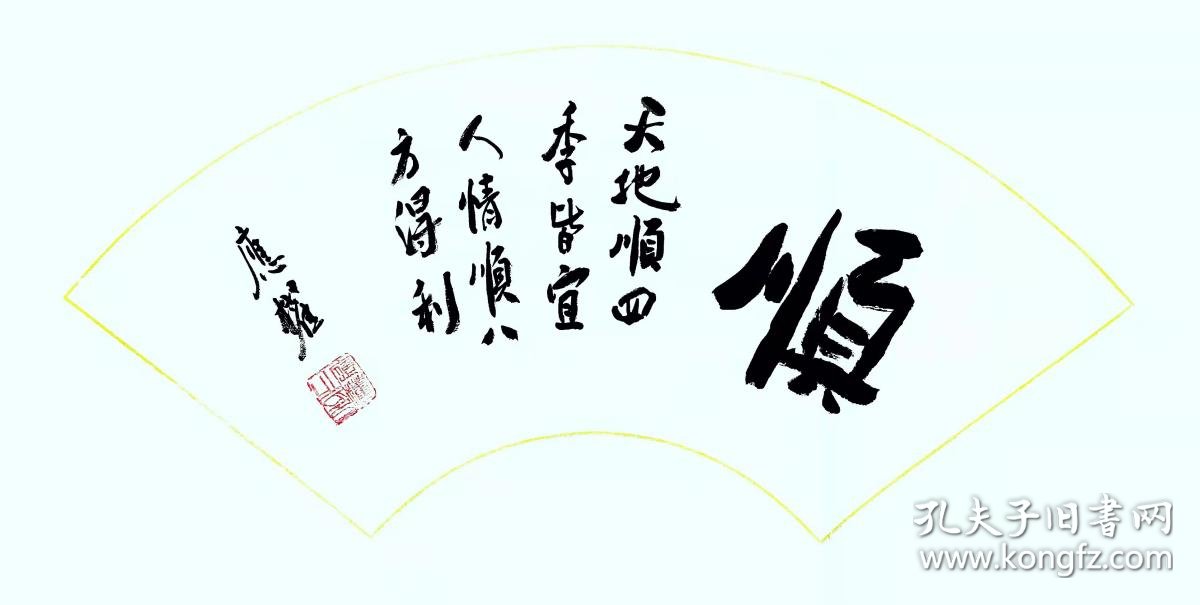 順
天地順四
季皆宜
人情順八
方得利
應耀
孔夫子旧書网
www.kongfz.com